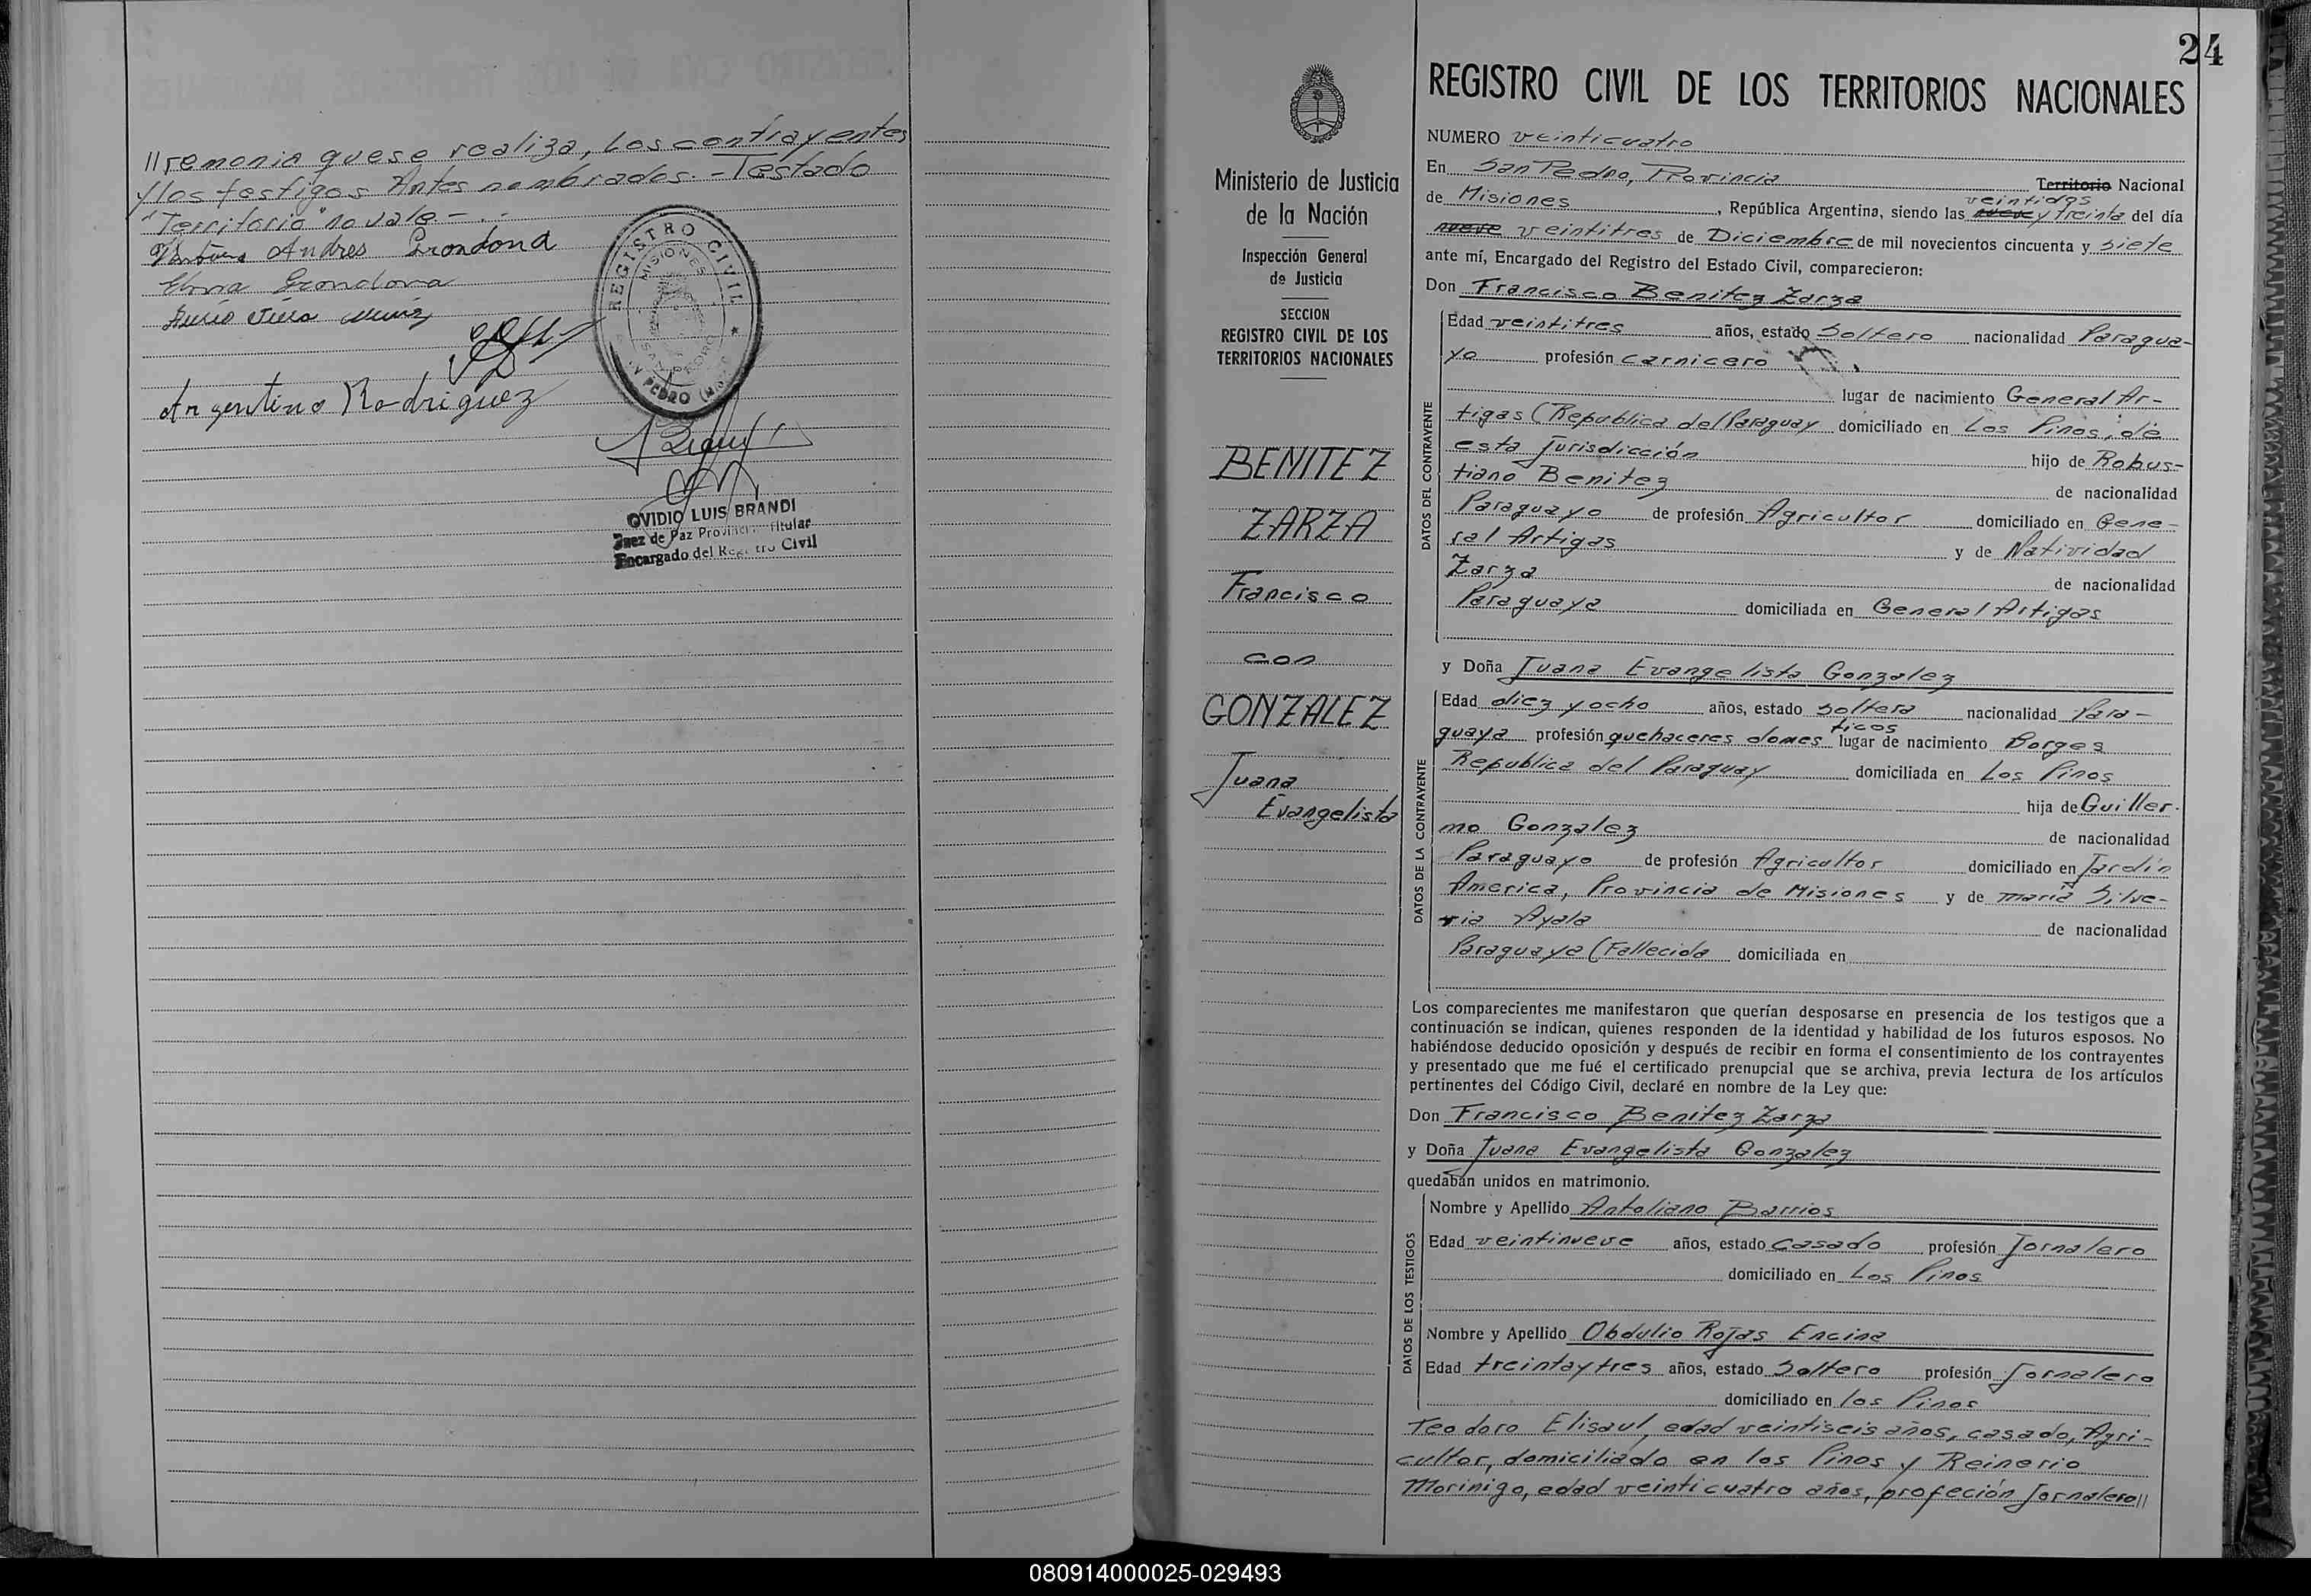 //remonia que se realiza, Los contrayentes
y los testigos Antes nombrados.- Testado
"Territorio" no vale - . -
Andres Grondona
Grondona
Argentino Rodriguez
REGISTRO CIVIL
MISIONES
SAN PEDRO
OVIDIO LUIS BRANDI
Juez de Paz Provincial Titular
Encargado del Registro Civil
24
Ministerio de Justicia
de la Nación
Inspección General
de Justicia
SECCION
REGISTRO CIVIL DE LOS
TERRITORIOS NACIONALES
BENITEZ
ZARZA
Francisco
con
GONZALEZ
Juana
Evangelista
REGISTRO CIVIL DE LOS TERRITORIOS NACIONALES
NUMERO veinticuatro
En San Pedro, Provincia Territorio Nacional
veintidos
de Misiones, República Argentina, siendo las nueve y treinta del día
nueve veintitres de Diciembre de mil novecientos cincuenta y siete
ante mí, Encargado del Registro del Estado Civil, comparecieron:
Don Francisco Benitez Zarza
DATOS DEL CONTRAYENTE
Edad veintitres años, estado Soltero nacionalidad Paragua-
yo profesión Carnicero
lugar de nacimiento General Ar-
tigas (Republica del Paraguay domiciliado en Los Pinos, de
esta jurisdicción hijo de Robus-
tiano Benitez de nacionalidad
Paraguayo de profesión Agricultor domiciliado en Gene-
ral Artigas y de Natividad
Zarza de nacionalidad
Paraguaya domiciliada en General Artigas
y Doña Juana Evangelista Gonzalez
DATOS DE LA CONTRAYENTE
Edad diez y ocho años, estado Soltera nacionalidad Para-
ticos
guaya profesión quehaceres domes lugar de nacimiento Borges
Republica del Paraguay domiciliada en Los Pinos
hija de Guiller-
mo Gonzalez de nacionalidad
Paraguayo de profesión Agricultor domiciliado en Jardin
America, Provincia de Misiones y de maria Silve-
ria Ayala de nacionalidad
Paraguaya (Fallecida domiciliada en
Los comparecientes me manifestaron que querían desposarse en presencia de los testigos que a
continuación se indican, quienes responden de la identidad y habilidad de los futuros esposos. No
habiéndose deducido oposición y después de recibir en forma el consentimiento de los contrayentes
y presentado que me fué el certificado prenupcial que se archiva, previa lectura de los artículos
pertinentes del Código Civil, declaré en nombre de la Ley que:
Don Francisco Benitez Zarza
y Doña Juana Evangelista Gonzalez
quedaban unidos en matrimonio.
DATOS DE LOS TESTIGOS
Nombre y Apellido Antoliano Barrios
Edad veintinueve años, estado Casado profesión Jornalero
domiciliado en Los Pinos
Nombre y Apellido Obdulio Rojas Encina
Edad treintaytres años, estado Soltero profesión Jornalero
domiciliado en los Pinos
Teodoro Elisaul, edad veintiseis años, casado, Agri-
cultor, domiciliado en los Pinos y Reinerio
Morinigo, edad veinticuatro años, profeción Jornalero//
080914000025-029493